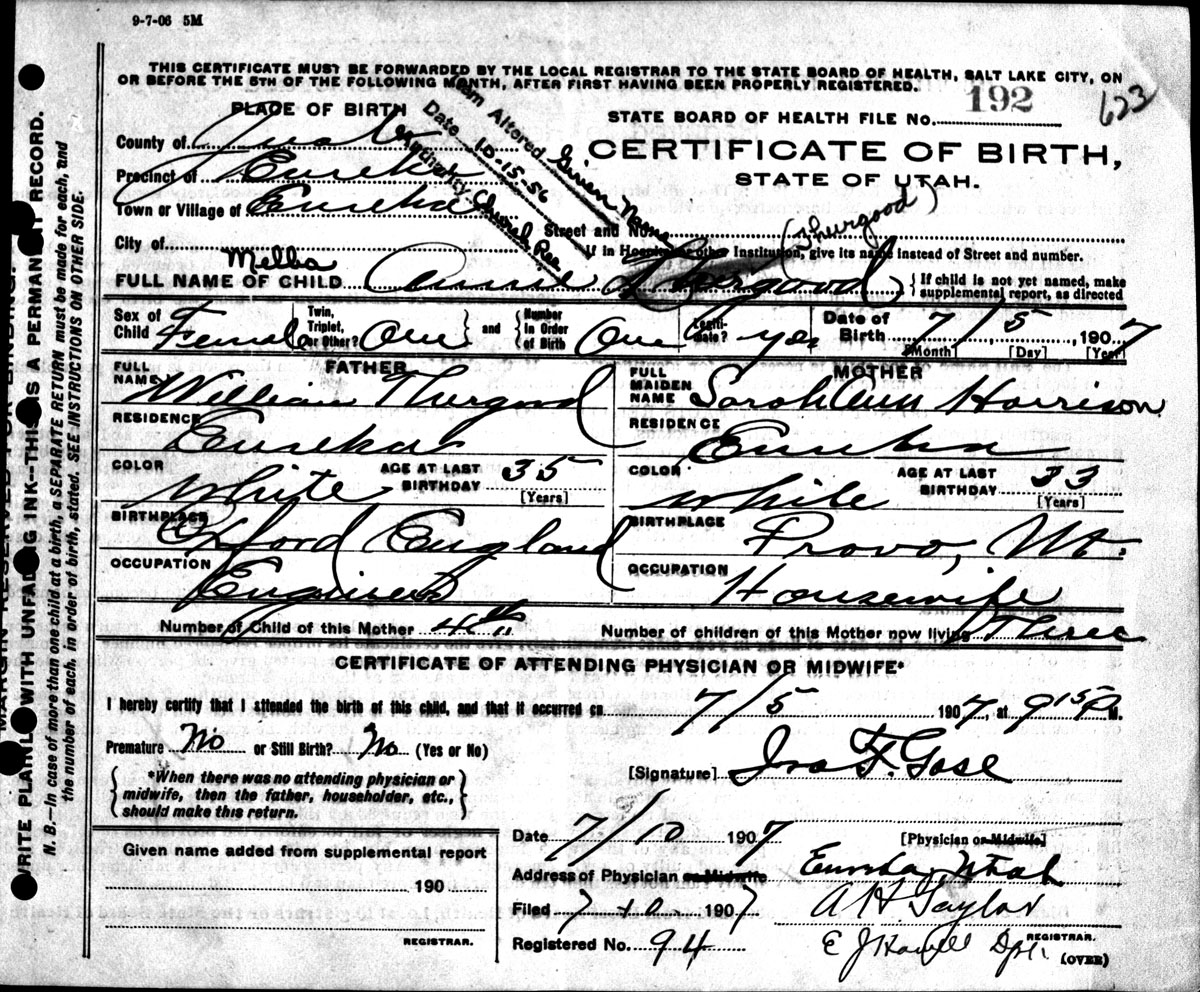 9-7-06 5M
THIS CERTIFICATE MUST BE FORWARDED BY THE LOCAL REGISTRAR TO THE STATE BOARD OF HEALTH, SALT LAKE CITY, ON
OR BEFORE THE 5TH OF THE FOLLOWING MONTH, AFTER FIRST HAVING BEEN PROPERLY REGISTERED.
623
PLACE OF BIRTH
STATE BOARD OF HEALTH FILE NO. 192
CERTIFICATE OF BIRTH,
STATE OF UTAH.
Item Altered Given Name
Date 10-15-56
Authority Church Rec
County of Juab
Precinct of Eureka
Town or Village of Eureka
Street and No.
City of
If in Hospital or other Institution, give its name instead of Street and number.
(Thurgood)
Mellba
FULL NAME OF CHILD Annie Thergood
{If child is not yet named, make
supplemental report, as directed
Sex of Child Female
Twin, Triplet, or Other? One
and
Number in Order of Birth One
Legiti-mate? yes
Date of Birth 7/5, 1907
[Month] [Day] [Year]
FATHER
FULL NAME William Thergood
RESIDENCE Eureka
COLOR white
AGE AT LAST BIRTHDAY 35
[Years]
BIRTHPLACE Oxford England
OCCUPATION Engineer
MOTHER
FULL MAIDEN NAME Sarah Ann Harrison
RESIDENCE Eureka
COLOR white
AGE AT LAST BIRTHDAY 33
[Years]
BIRTHPLACE Provo, Ut.
OCCUPATION Housewife
Number of Child of this Mother 4th
Number of children of this Mother now living Three
CERTIFICATE OF ATTENDING PHYSICIAN OR MIDWIFE*
I hereby certify that I attended the birth of this child, and that it occurred on 7/5 1907, at 9 15 P.M.
Premature No or Still Birth? No (Yes or No)
*When there was no attending physician or
midwife, then the father, householder, etc.,
should make this return.
[Signature] Ira F. Gose
[Physician or Midwife]
Given name added from supplemental report
190
REGISTRAR.
Date 7/10 1907
Address of Physician or Midwife Eureka, Utah
Filed 7-10 1907 A H Taylor
REGISTRAR.
Registered No. 94 E J Howell Dpt.
(OVER)
MARGIN RESERVED FOR BINDING.
WRITE PLAINLY WITH UNFADING INK--THIS IS A PERMANENT RECORD.
N. B.—In case of more than one child at a birth, a SEPARATE RETURN must be made for each, and
the number of each, in order of birth, stated. SEE INSTRUCTIONS ON OTHER SIDE.